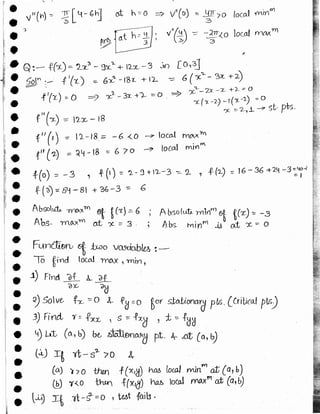 v"(h) = π/3 [4-6h] at h=0 ⇒ v"(0) = 4π/3 >0 local minm
at h = 4/3 ; v"(4/3) = -2π<0 local maxm
Q:- f(x) = 2x³ - 9x² + 12x - 3 in [0,3]
Soln:- f'(x) = 6x² - 18x + 12 = 6(x² - 3x + 2)
f'(x) = 0 ⇒ x² - 3x + 2 = 0 ⇒ x² - 2x - x + 2 = 0
x(x-2) -1(x-2) = 0
x = 2, 1 → st. pts.
f"(x) = 12x - 18
f"(1) = 12 - 18 = -6 < 0 → local maxm
f"(2) = 24 - 18 = 6 > 0 → local minm
f(0) = -3 , f(1) = 2 - 9 + 12 - 3 = 2 , f(2) = 16 - 36 + 24 - 3 = 1
f(3) = 54 - 81 + 36 - 3 = 6
Absolute maxm of f(x) = 6 ; Absolute minm of f(x) = -3
Abs. maxm at x = 3. ; Abs. minm is at x = 0
Function of two variables :-
To find local max, min,
1) Find ∂f/∂x & ∂f/∂y
2) Solve fx = 0 & fy = 0 for stationary pts. (Critical pts)
3) Find r = fxx , s = fxy , t = fyy
4) Let (a,b) be stationary pt. & at (a,b)
(i) If rt - s² > 0 &
(a) r > 0 then f(x,y) has local minm at (a,b)
(b) r < 0 then f(x,y) has local maxm at (a,b)
(ii) If rt - s² = 0 , test fails.